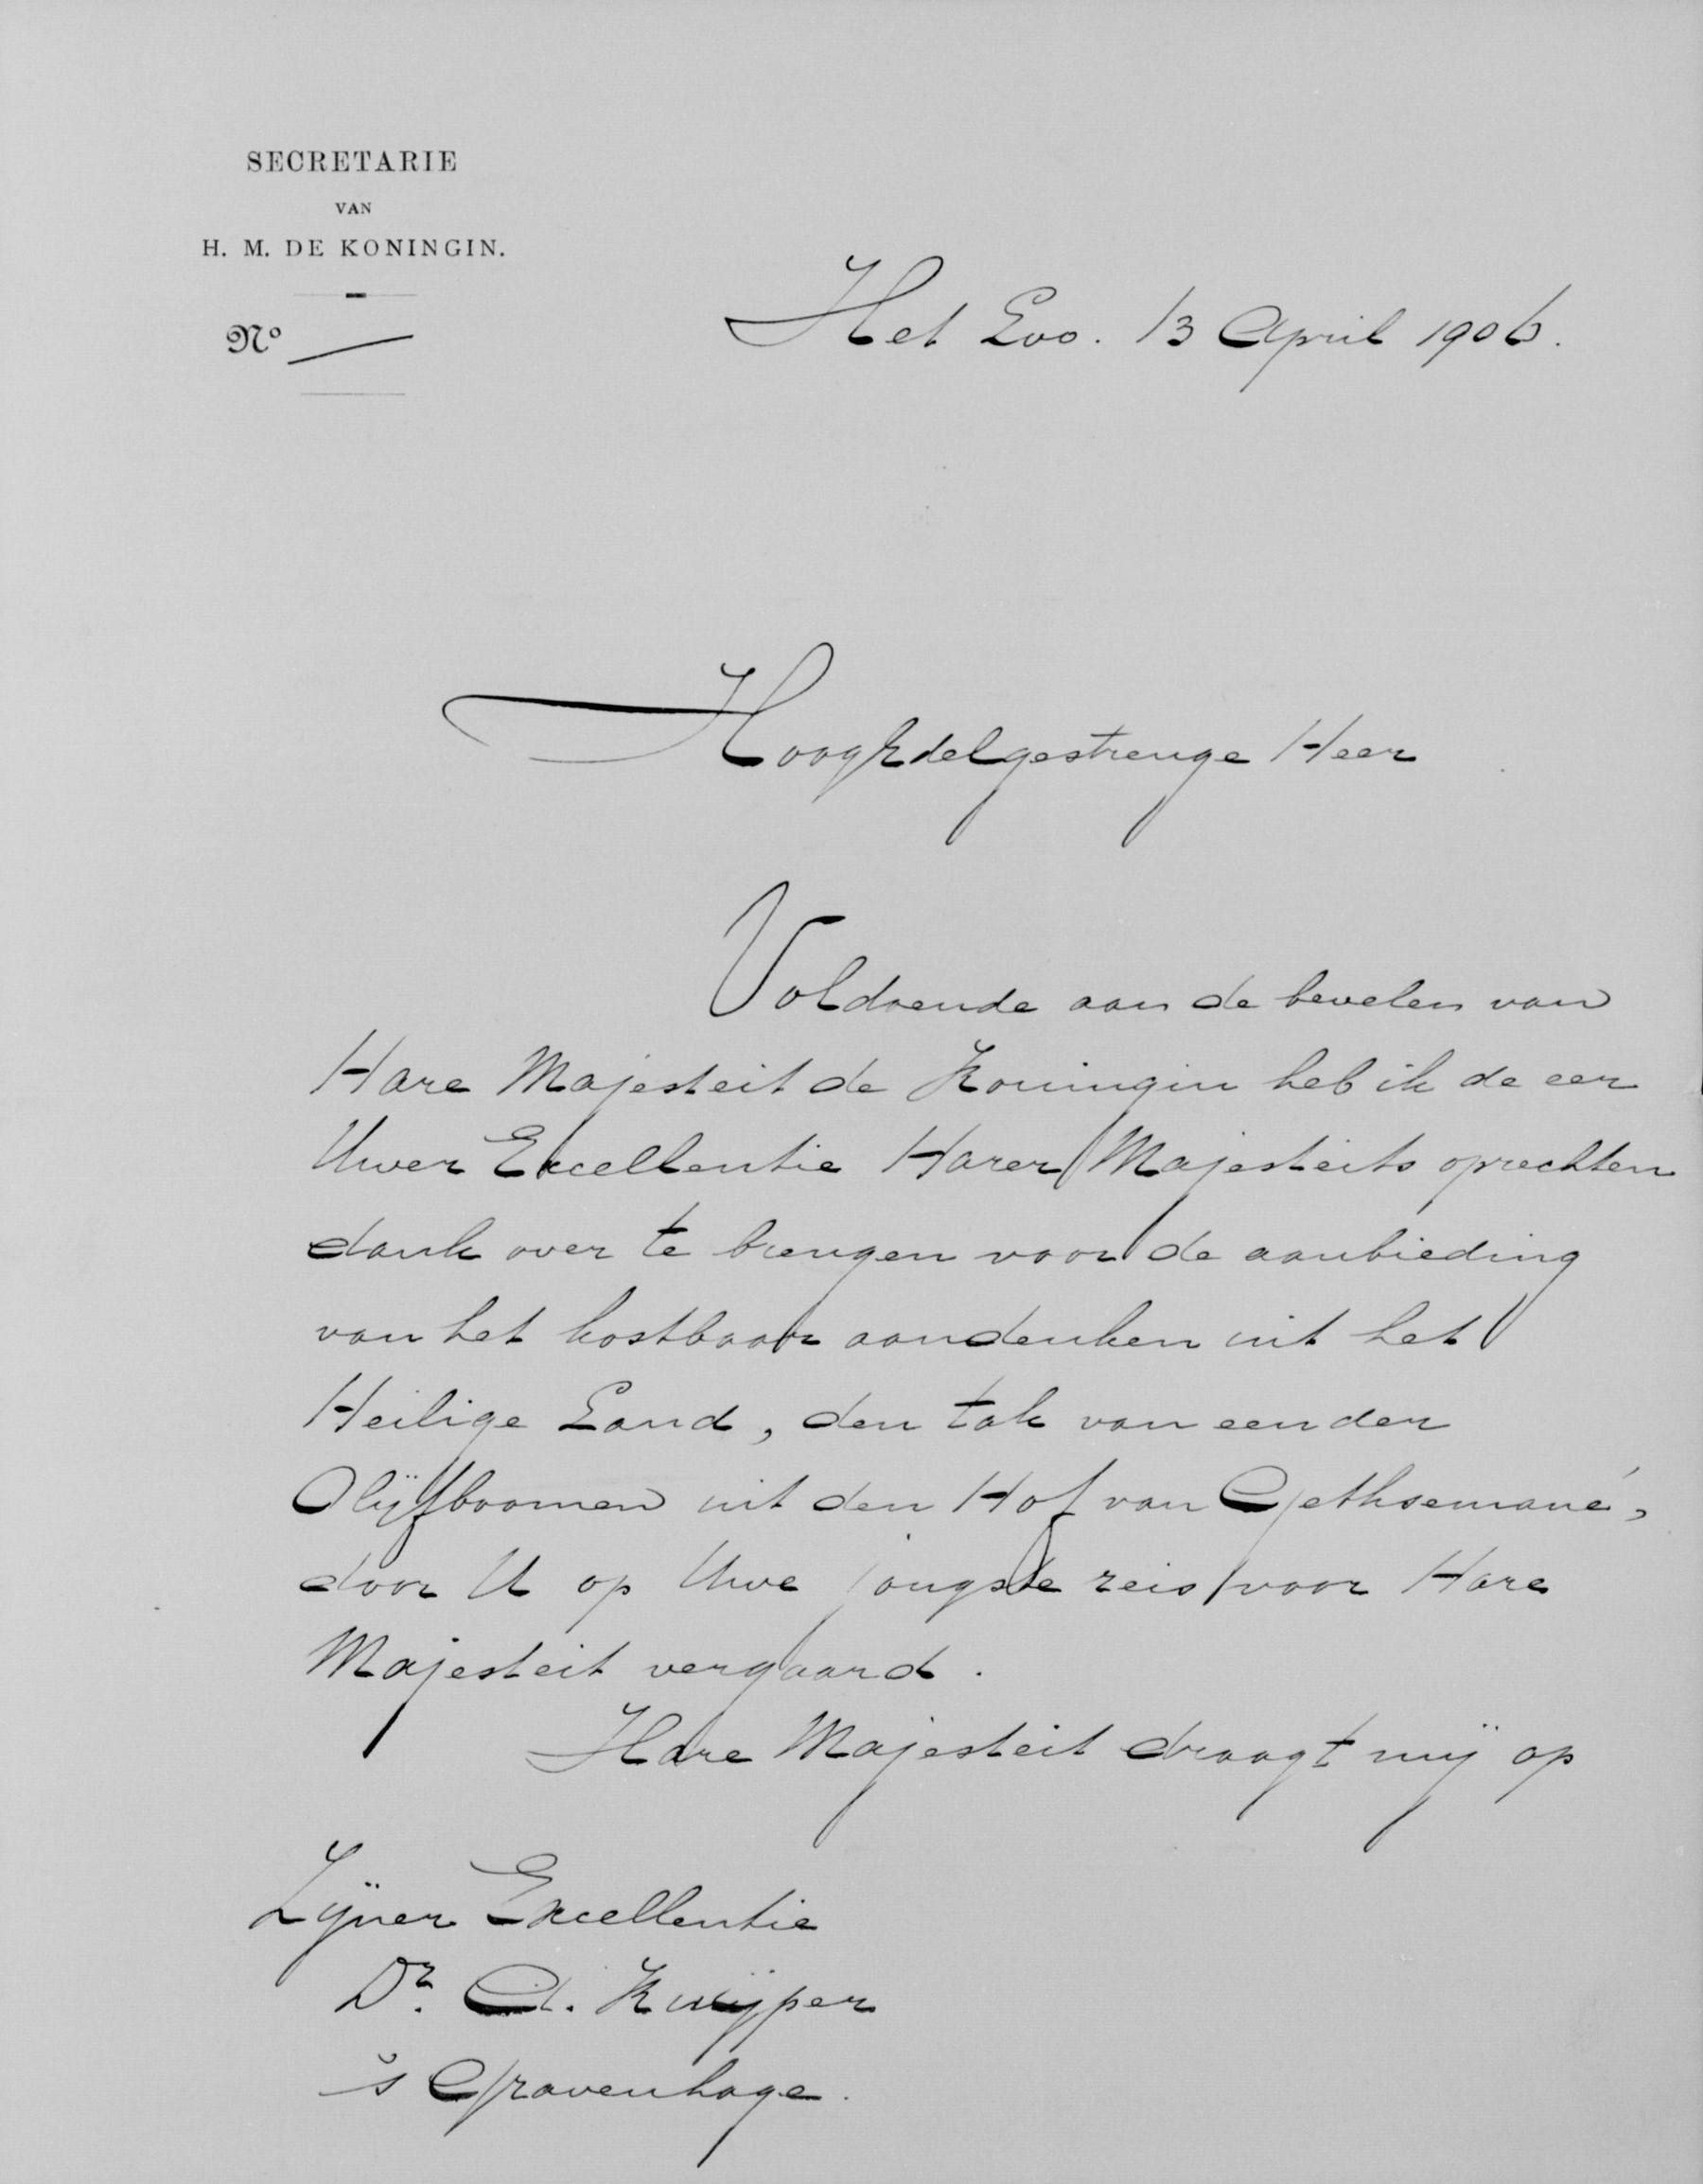 SECRETARIE
VAN
H. M. DE KONINGIN.
Nº —
Het Loo. 13 April 1906.
HoogEdelgestrenge Heer
Voldoende aan de bevelen van
Hare Majesteit de Koningin heb ik de eer
Uwer Excellentie Harer Majesteits oprechten
dank over te brengen voor de aanbieding
van het kostbaar aandenken uit het
Heilige Land, den tak van een der
Olijfboomen uit den Hof van Gethsemané,
door U op Uwe jongste reis voor Hare
Majesteit vergaard.
Hare Majesteit draagt mij op
Zijner Excellentie
Dr. A. Kuijper
's Gravenhage.